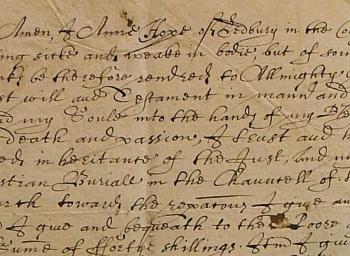 Amen, I Anne Hope of Ledbury in the Co
ing sicke and weake in bodie, but of sou
nks be therefore rendred to Allmighty
st will and Testament in mann and
d my Soule into the hands of my Bl
death and passion, I trust and h
ed inheritance of the Just, and m
stian Buriall in the Chauncell of
urch towards the reparacons I giue an
I giue and bequeath to the Poore
Sume of ffortye shillings. Itm I giu